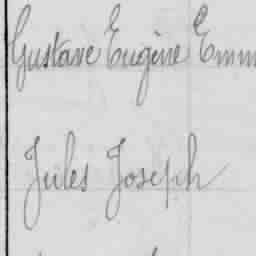 Gustave Eugène Emm
Jules Joseph